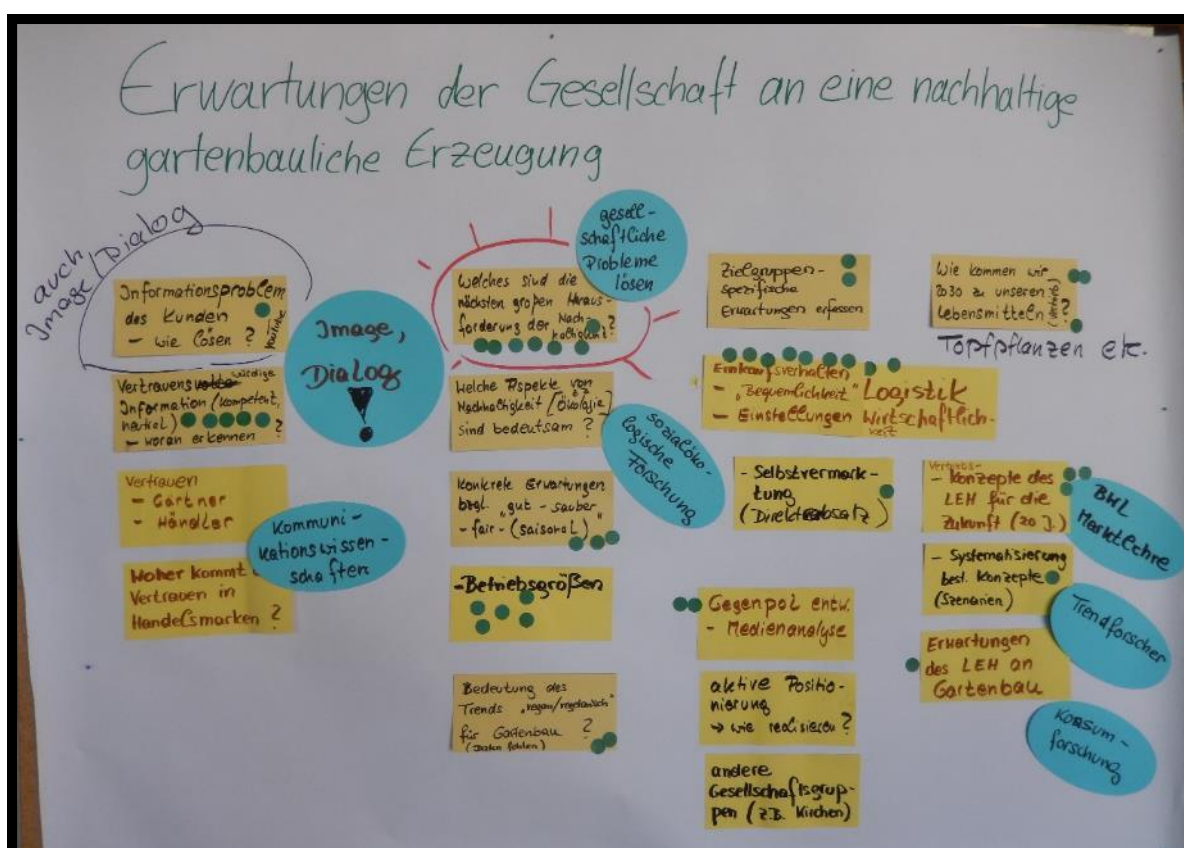 Erwartungen der Gesellschaft an eine nachhaltige
gartenbauliche Erzeugung
auch
Image/Dialog
Informationsproblem
des Kunden
- wie lösen ?
Vertrauenswürdige
Information (kompetent,
neutral) ?
- woran erkennen
Vertrauen
- Gärtner
- Händler
Woher kommt
Vertrauen in
Handelsmarken ?
Image,
Dialog
!
Kommuni-
kationswissen-
schaften
gesell-
schaftliche
Probleme
lösen
Welches sind die
nächsten großen Heraus-
forderung der Nach-
haltigkeit ?
Welche Aspekte von
Nachhaltigkeit [Ökologie]
sind bedeutsam ?
Konkrete Erwartungen
bzgl. "gut - sauber"
- fair - (saisonal)
- Betriebsgrößen
Bedeutung des
Trends "vegan/vegetarisch"
für Gartenbau ?
(Daten fehlen)
sozialöko-
logische
Forschung
Zielgruppen-
spezifische
Erwartungen erfassen
Einkaufsverhalten
- "Bequemlichkeit" Logistik
- Einstellungen Wirtschaftlich-
keit
- Selbstvermark-
tung
(Direktabsatz)
Gegenpol entw.
- Medienanalyse
aktive Positio-
nierung
→ wie realisieren ?
andere
Gesellschaftsgrup-
pen (z.B. Kirchen)
Wie kommen wir
2030 zu unseren
Lebensmitteln ?
Topfpflanzen etc.
Vertriebs-
- Konzepte des
LEH für die
Zukunft (20 J.)
- Systematisierung
best. Konzepte
(Szenarien)
Erwartungen
des LEH an
Gartenbau
BWL
Marktlehre
Trendforscher
Konsum-
forschung